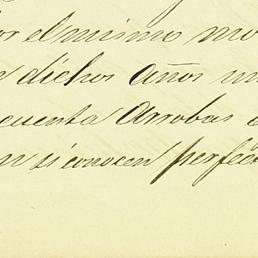 or el mismo mo
e dichos años un
cuenta Arrobas e
n si conocen perfec